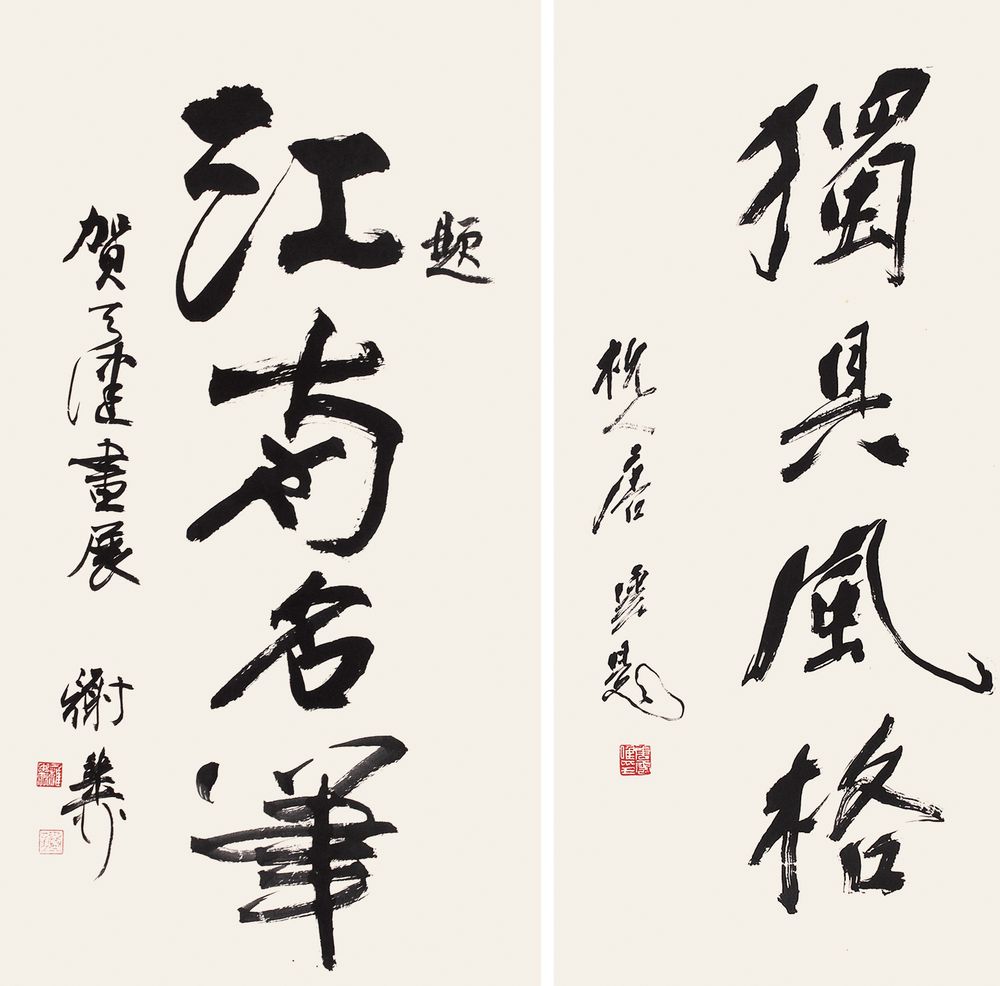 獨具風格
杭人唐雲題
題
江南名筆
賀天健畫展